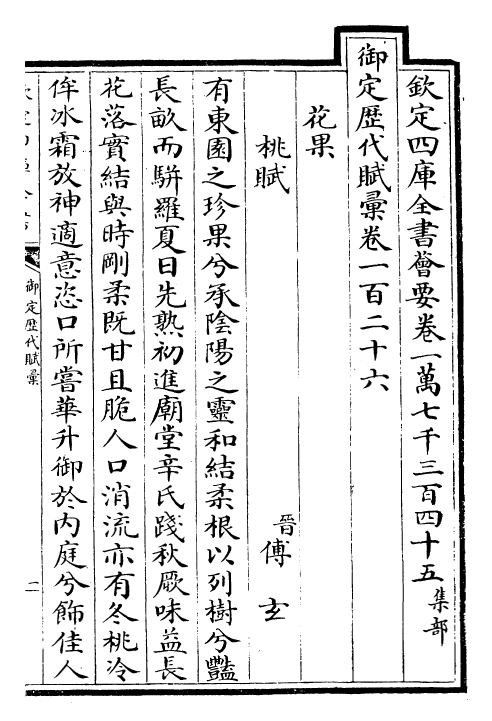 欽定四庫全書薈要卷一萬七千三百四十五 集部
御定歷代賦彙卷一百二十六
花果
桃賦
晉傅玄
有東園之珍果兮承陰陽之靈和結柔根以列樹兮豔
長畝而駢羅夏日先熟初進廟堂辛氏踐秋厥味益長
花落實結與時剛柔既甘且脆入口消流亦有冬桃冷
侔冰霜放神適意恣口所嘗華升御於內庭兮飾佳人
御定歷代賦彙